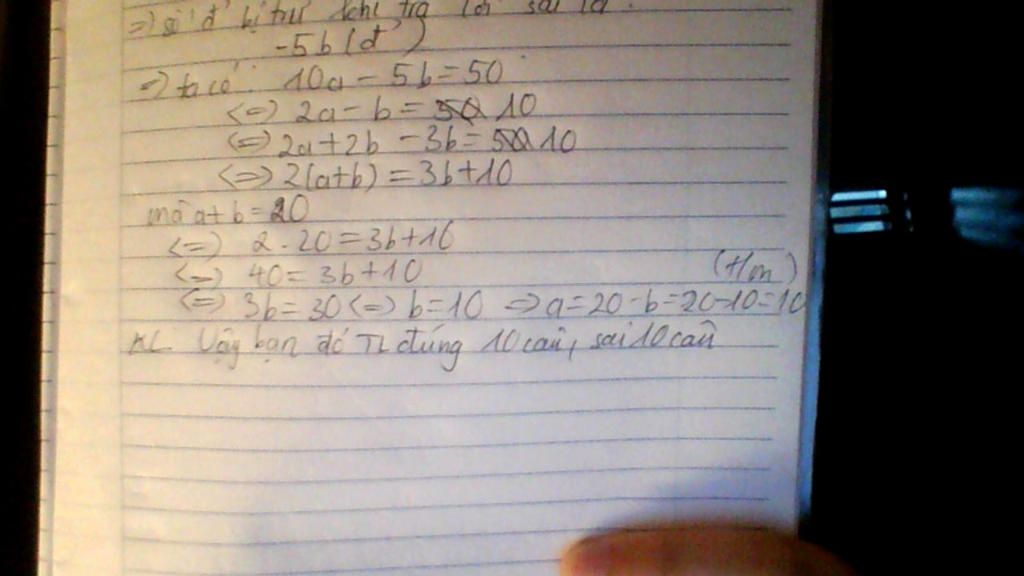 => số đ' bị trừ khi trả lời sai là:
-5b (đ')
=> ta có: 10a - 5b = 50
<=> 2a - b = 50 10
<=> 2a + 2b - 3b = 50 10
<=> 2(a+b) = 3b + 10
mà a + b = 20
<=> 2 . 20 = 3b + 10
<=> 40 = 3b + 10
(t/m)
<=> 3b = 30 <=> b = 10 => a = 20 - b = 20 - 10 = 10
KL: Vậy bạn đó TL đúng 10 câu, sai 10 câu